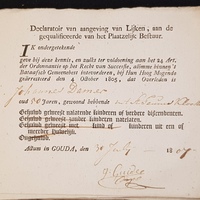 Declaratoir van aangeving van Lijken, aan de
gequalificeerde van het Plaatzelijk Bestuur.
IK ondergetekende
geve bij deze kennis, en zulks ter voldoening aan het 24 Art.
der Ordonnantie op het Recht van Successie, alömme binnen 't
Bataafsch Gemeenebest intevorderen, bij Hun Hoog Mogende
gearresteerd den 4 October 1805, dat Overleden is
Johannes
oud 50 Jaren, gewoond hebbende
Gehuwd geweest nalatende kinderen of verdere bijzonderen.
Gehuwd geweest zonder kinderen natelaten.
Gehuwd geweest met kind of kinderen uit een of
meerder huwelijk.
Ongehuwd.
Actum in GOUDA, den 30 July 1807